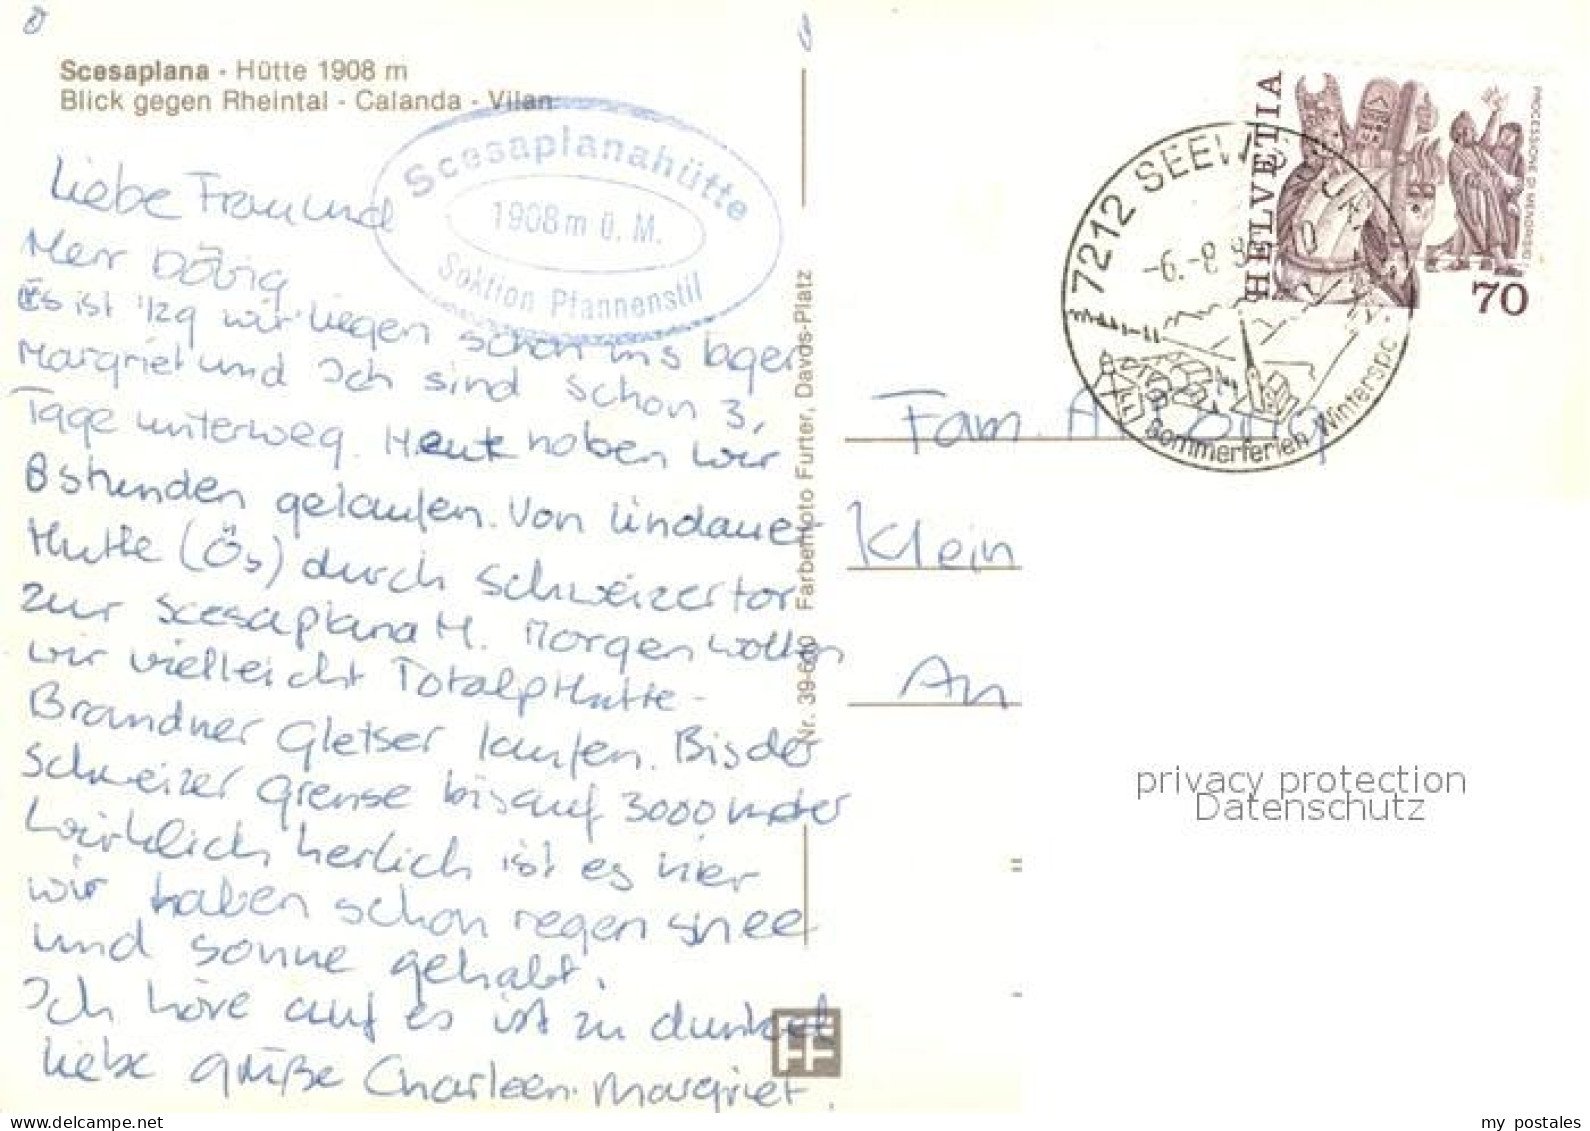 Scesaplana - Hütte 1908 m
Blick gegen Rheintal - Calanda - Vilan
Scesaplanahütte
1908 m ü. M.
Sektion Pfannenstil
Liebe Frau und
Herr Döbig
Es ist 1/2 9 wir liegen schon ins lager
Margriet und Ich sind schon 3,
Tage unterweg. Heute haben wir
8 stunden gelaufen. Von Lindauer
Hutte (Ös) durch Schweizertor
zur Scesaplana H. Morgen wollen
wir vielleicht TotalpHutte -
Brandner Gletser laufen. Bis der
Schweizer Grense bis auf 3000 meter
Wirklich herlich ist es hier
wir haben schon regen snee
und sonne gehabt.
Ich höre auf es ist zu dunkel
liebe Grüße Charleen. Margriet.
Nr. 39-600 Farbenfoto Furter, Davos-Platz
HELVETIA
PROCESSIONE DI MENDRISIO
70
7212 SEEWIS
-6.-8
Sommerferien Winterspo
Fam. A
Klein
An
privacy protection
Datenschutz
my postales